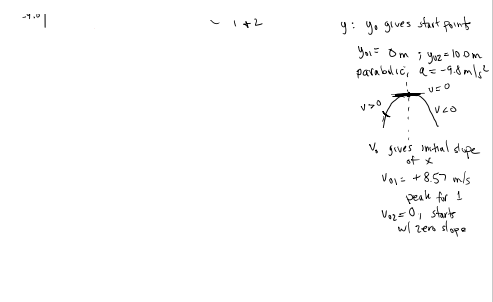 -9.8
1 + 2
y: y₀ gives start points
y₀₁ = 0 m ; y₀₂ = 10.0 m
parabolic, a = -9.8 m/s²
v=0
v>0
v<0
v₀ gives initial slope
of x
v₀₁ = +8.57 m/s
peak for 1
v₀₂ = 0, starts
w/ zero slope